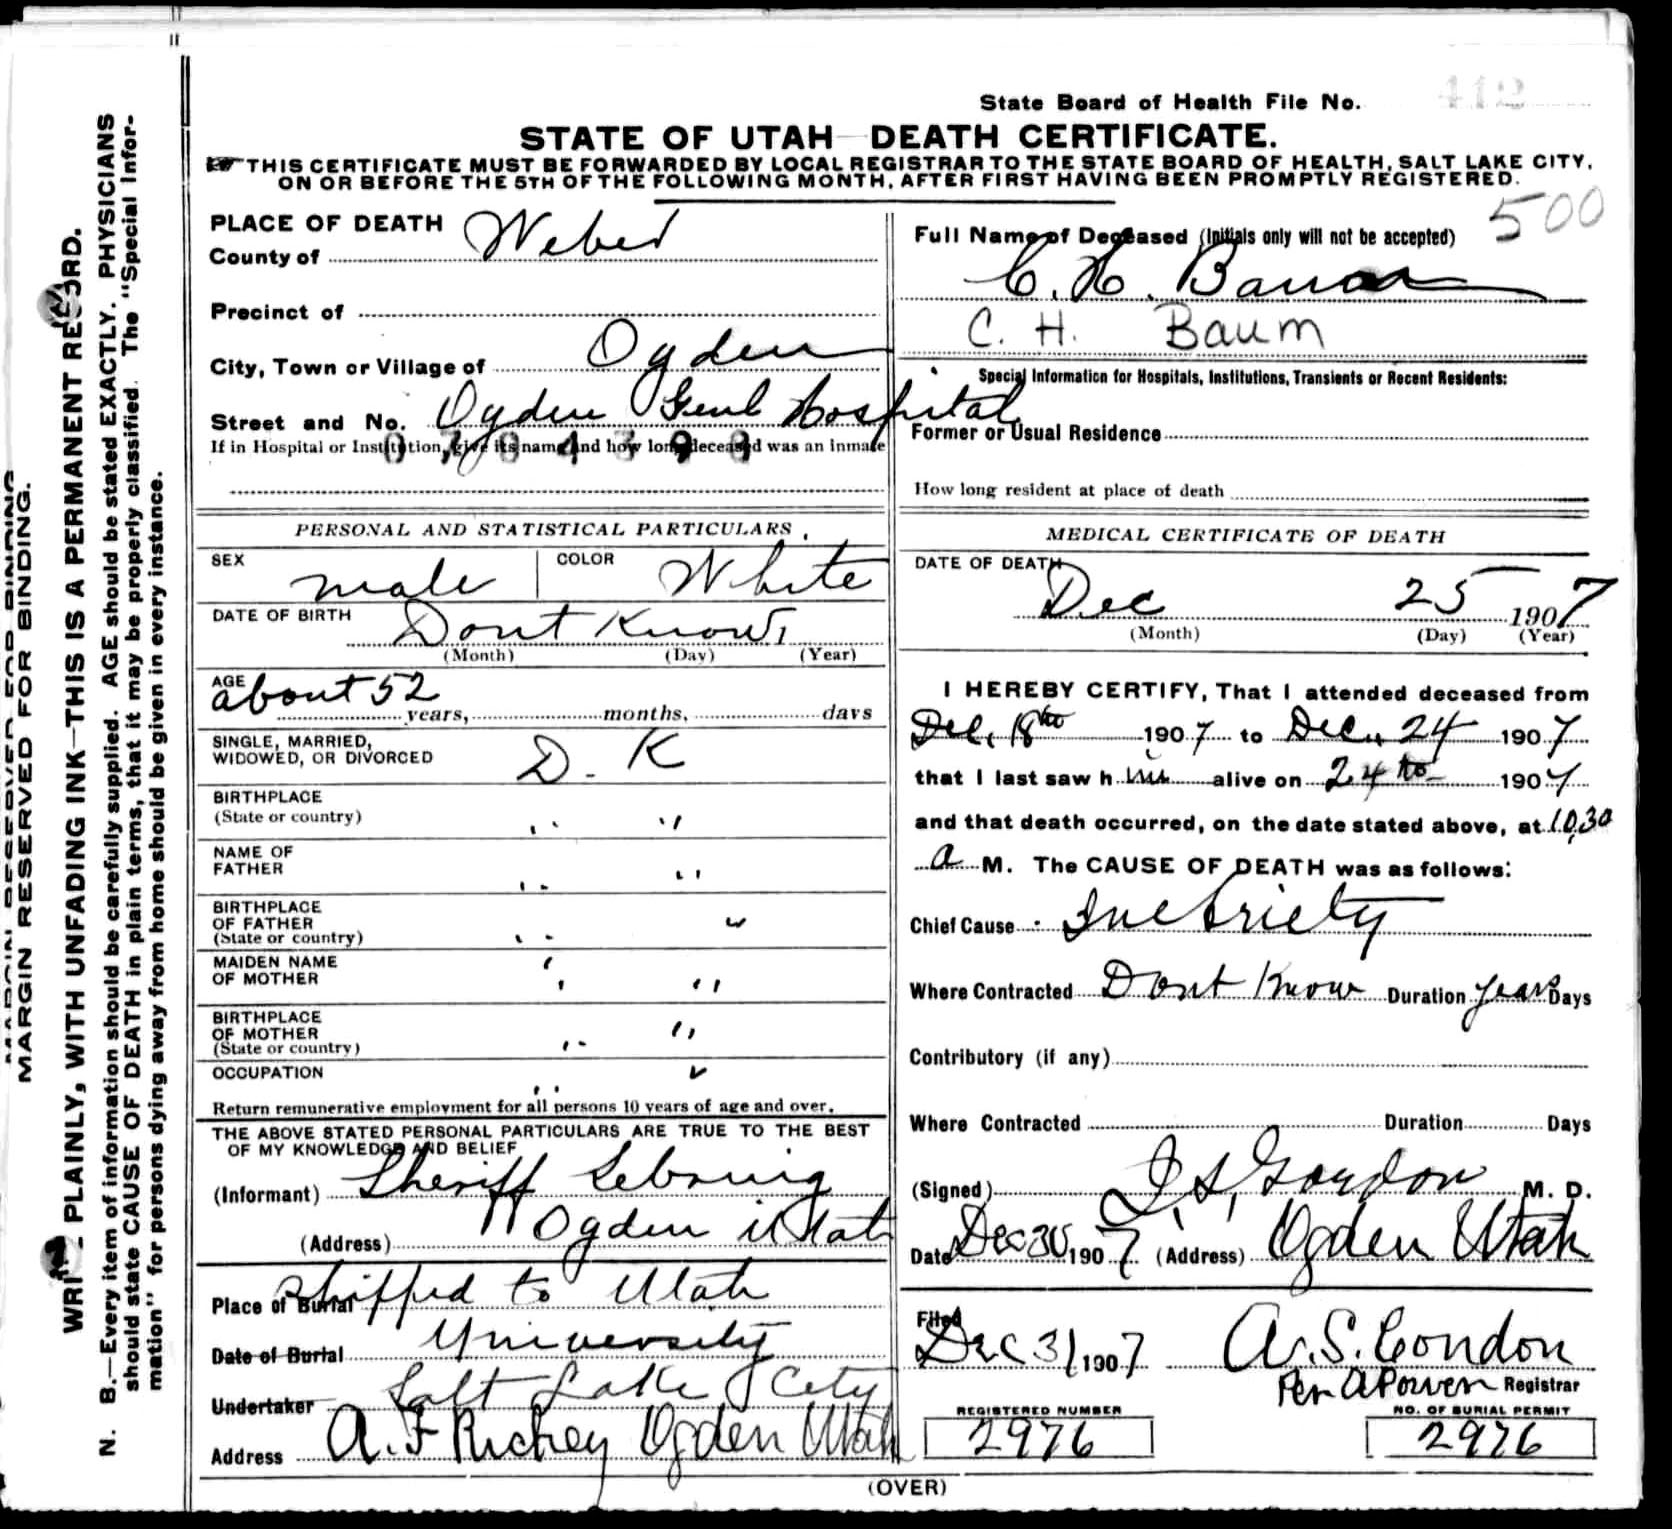 State Board of Health File No. 412
STATE OF UTAH—DEATH CERTIFICATE.
THIS CERTIFICATE MUST BE FORWARDED BY LOCAL REGISTRAR TO THE STATE BOARD OF HEALTH, SALT LAKE CITY,
ON OR BEFORE THE 5TH OF THE FOLLOWING MONTH, AFTER FIRST HAVING BEEN PROMPTLY REGISTERED.
500
MARGIN RESERVED FOR BINDING.
WRITE PLAINLY, WITH UNFADING INK—THIS IS A PERMANENT RECORD.
N. B.—Every item of information should be carefully supplied. AGE should be stated EXACTLY. PHYSICIANS
should state CAUSE OF DEATH in plain terms, that it may be properly classified. The "Special Infor-
mation" for persons dying away from home should be given in every instance.
PLACE OF DEATH
County of Weber
Precinct of
City, Town or Village of Ogden
Street and No. Ogden Genl Hospital
If in Hospital or Institution, give its name and how long deceased was an inmate
PERSONAL AND STATISTICAL PARTICULARS.
SEX male COLOR White
DATE OF BIRTH Dont Know
(Month) (Day) (Year)
AGE about 52 years, months, days
SINGLE, MARRIED,
WIDOWED, OR DIVORCED D. K
BIRTHPLACE
(State or country) " "
NAME OF
FATHER " "
BIRTHPLACE
OF FATHER
(State or country) " "
MAIDEN NAME
OF MOTHER " "
BIRTHPLACE
OF MOTHER
(State or country) " "
OCCUPATION " "
Return remunerative employment for all persons 10 years of age and over.
THE ABOVE STATED PERSONAL PARTICULARS ARE TRUE TO THE BEST
OF MY KNOWLEDGE AND BELIEF
(Informant) Sheriff Sebring
(Address) Ogden Utah
Place of Burial Shipped to Utah
Date of Burial University
Undertaker Salt Lake City
Address A. F Richey Ogden Utah
Full Name of Deceased (Initials only will not be accepted)
C. H. Baum
C. H. Baum
Special Information for Hospitals, Institutions, Transients or Recent Residents:
Former or Usual Residence
How long resident at place of death
MEDICAL CERTIFICATE OF DEATH
DATE OF DEATH
Dec 25 1907
(Month) (Day) (Year)
I HEREBY CERTIFY, That I attended deceased from
Dec. 18th 1907 to Dec. 24 1907
that I last saw him alive on 24th 1907
and that death occurred, on the date stated above, at 10.30
a M. The CAUSE OF DEATH was as follows:
Chief Cause Inebriety
Where Contracted Dont Know Duration years Days
Contributory (if any)
Where Contracted Duration Days
(Signed) Gordon M. D.
Date Dec 30 1907 (Address) Ogden Utah
Filed
Dec 31 1907 A. S. Condon
Per A Power Registrar
REGISTERED NUMBER
2976
NO. OF BURIAL PERMIT
2976
(OVER)